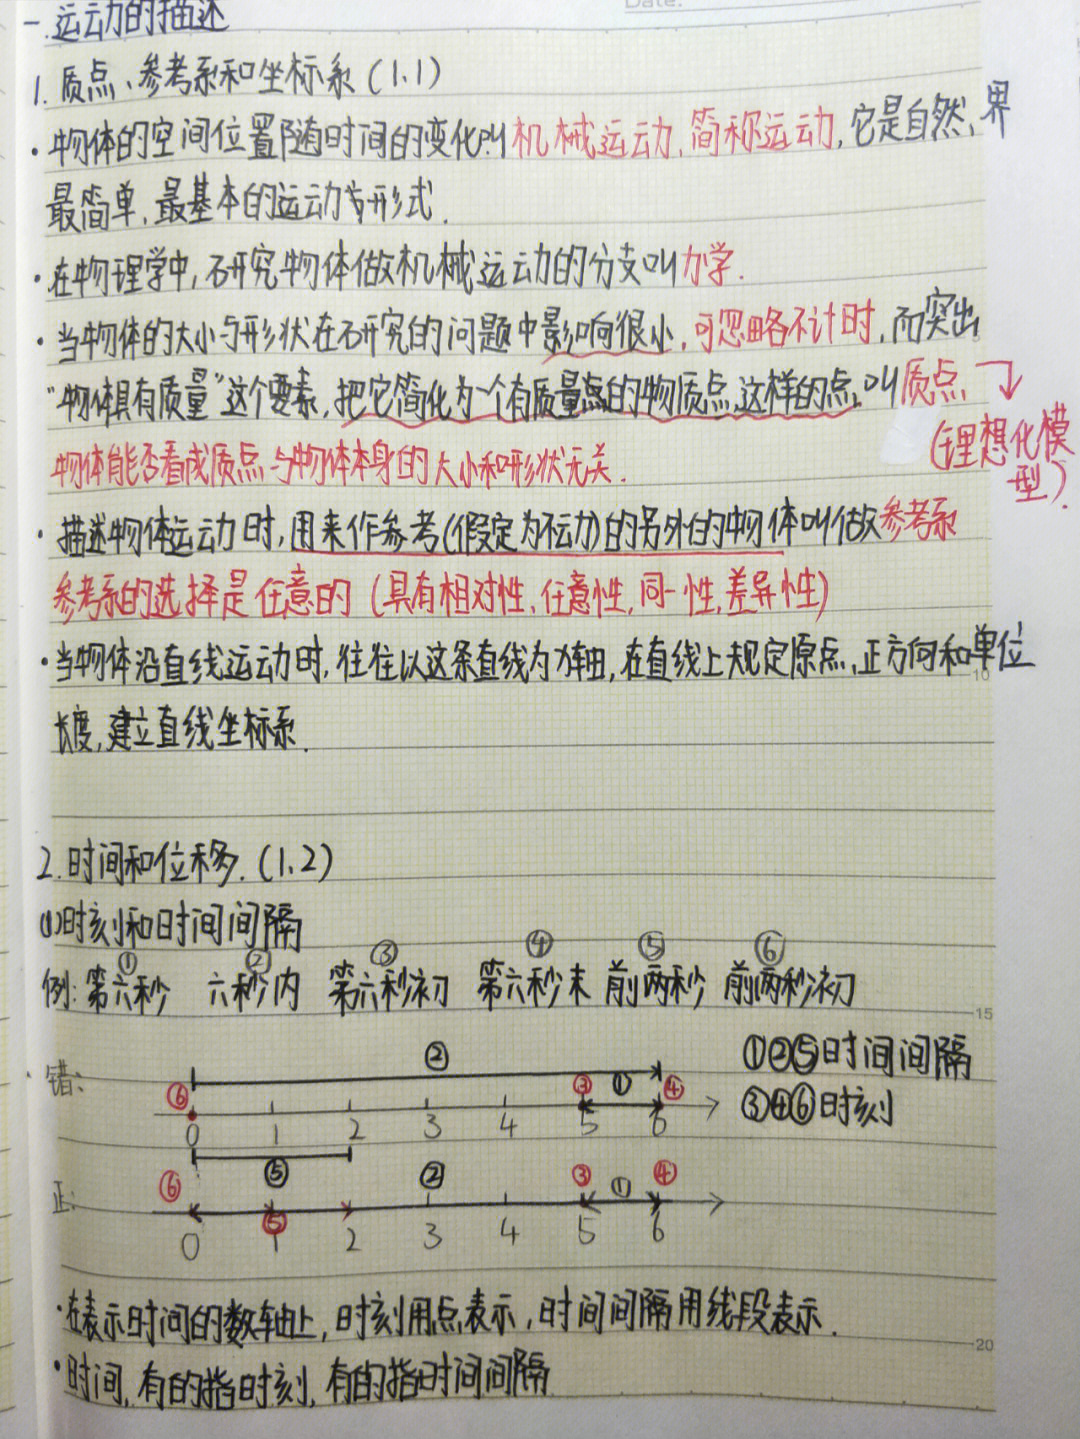 Date:
一.运动的描述
1. 质点、参考系和坐标系(1.1)
·物体的空间位置随时间的变化叫机械运动,简称运动,它是自然界
最简单,最基本的运动形式.
·在物理学中,研究物体做机械运动的分支叫力学.
·当物体的大小与形状在研究的问题中影响很小,可忽略不计时,而突出
“物体具有质量”这个要素,把它简化为一个有质量的物质点,这样的点,叫质点
(理想化模
型).
物体能否看成质点与物体本身的大小和形状无关.
·描述物体运动时,用来作参考(假定为不动)的另外的物体叫做参考系
参考系的选择是任意的(具有相对性,任意性,同一性,差异性)
·当物体沿直线运动时,往往以这条直线为x轴,在直线上规定原点,正方向和单位
10
长度,建立直线坐标系.
2.时间和位移.(1.2)
(1)时刻和时间间隔
① ② ③ ④ ⑤ ⑥
例:第六秒 六秒内 第六秒初 第六秒末 前两秒 前两秒初
15
错: ② ①②⑤时间间隔
⑥ ③ ① ④ ③④⑥时刻
0 1 2 3 4 5 6
⑥ ⑤ ② ③ ① ④
正: ⑤
0 1 2 3 4 5 6
·在表示时间的数轴上,时刻用点表示,时间间隔用线段表示.
20
·时间,有的指时刻,有的指时间间隔